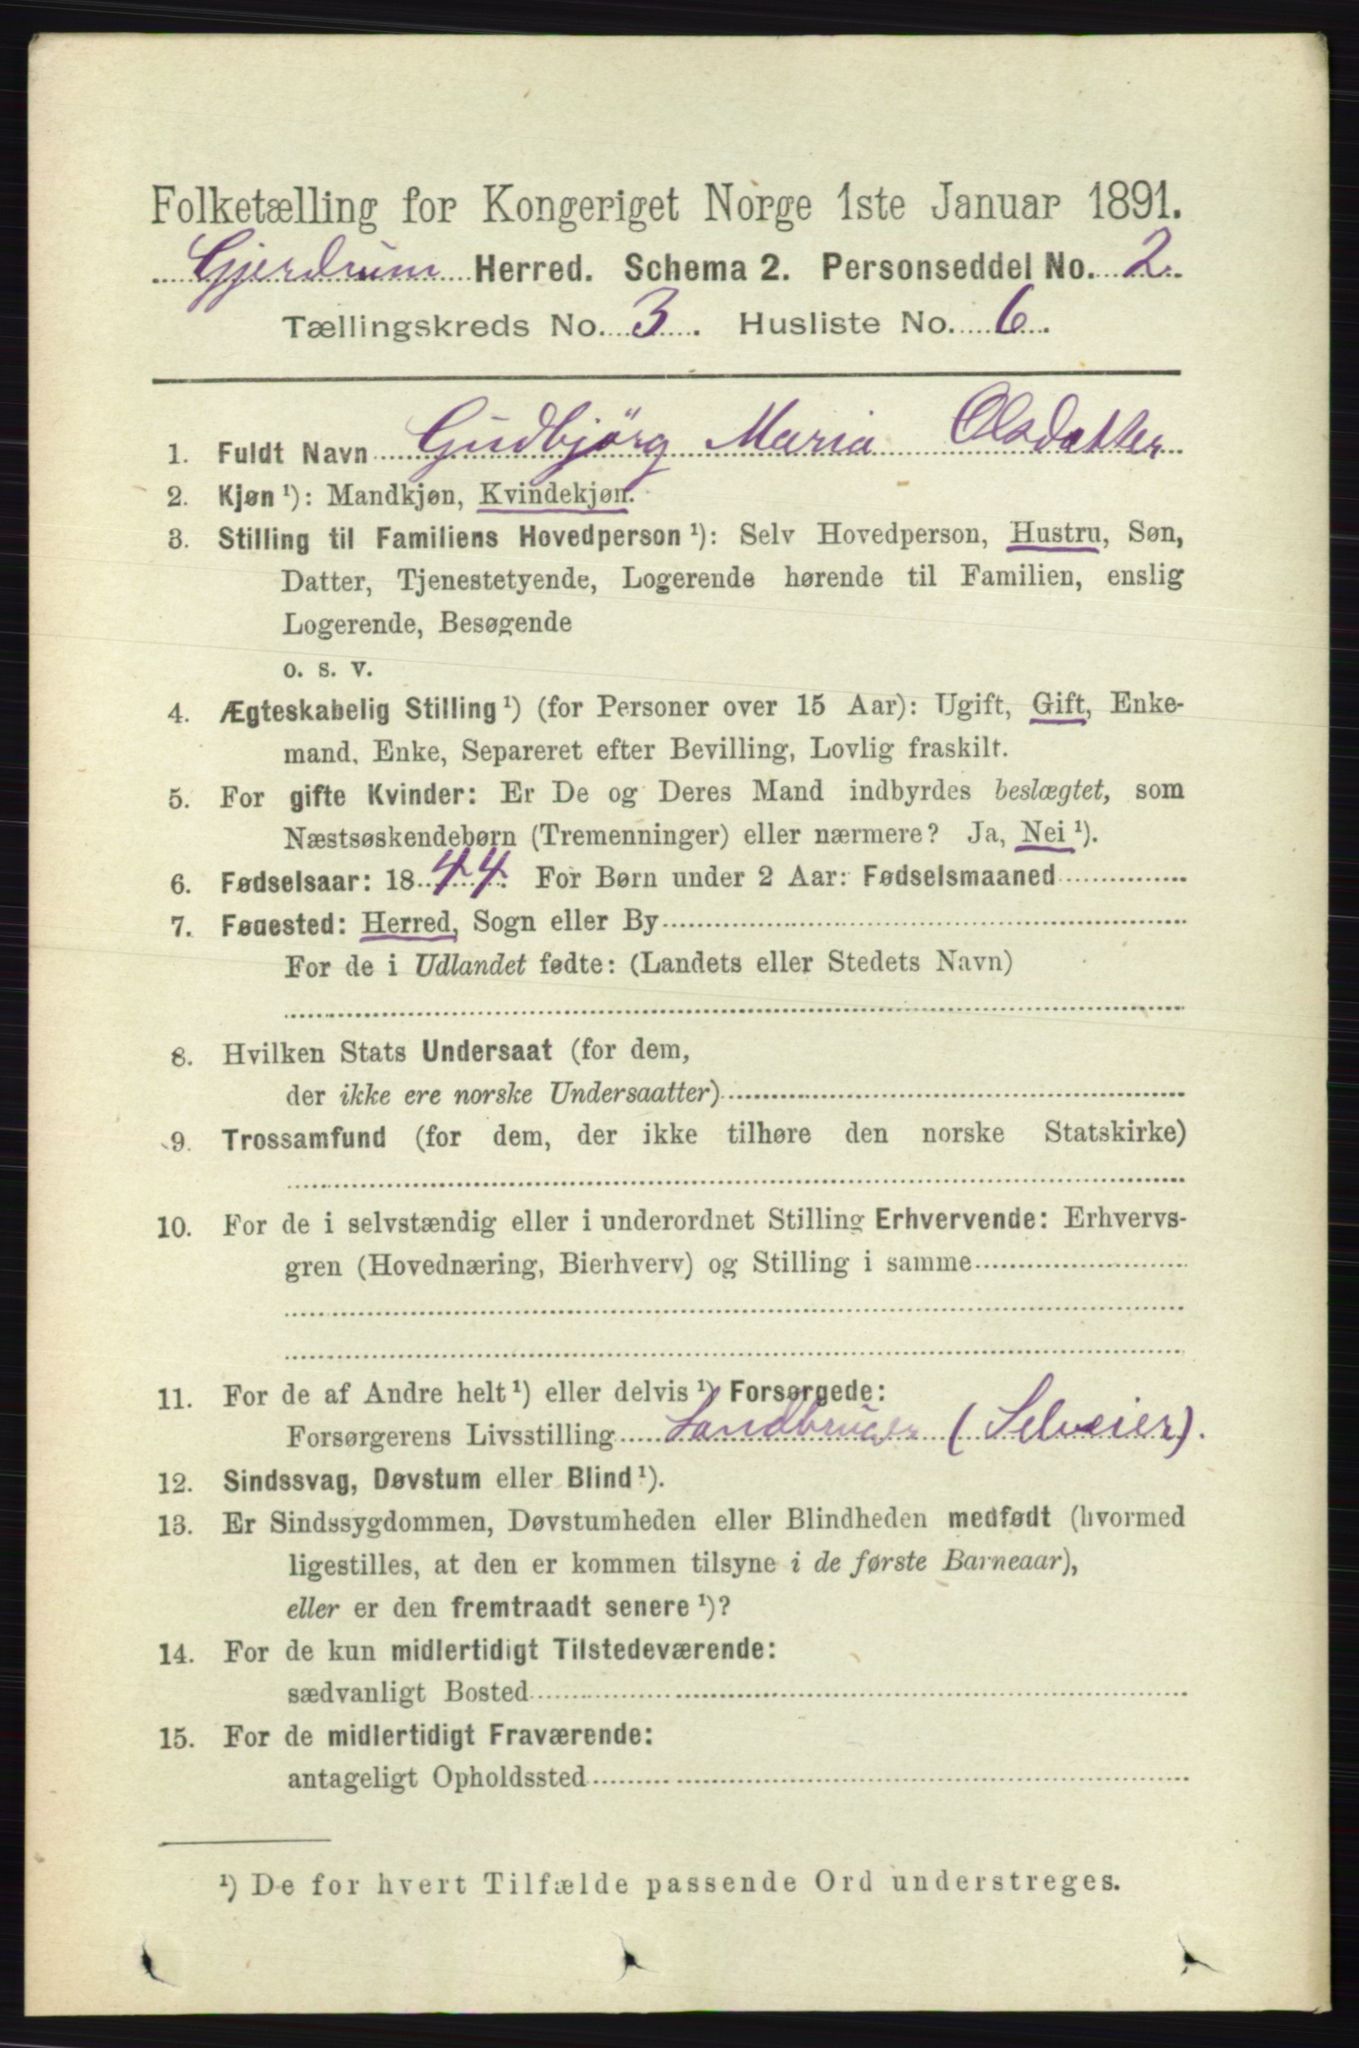 Folketælling for Kongeriget Norge 1ste Januar 1891.
Gjerdrum Herred. Schema 2. Personseddel No. 2.
Tællingskreds No. 3. Husliste No. 6.
1. Fuldt Navn Gudbjörg Maria Olsdatter
2. Kjøn ¹): Mandkjøn, Kvindekjøn.
3. Stilling til Familiens Hovedperson ¹): Selv Hovedperson, Hustru, Søn,
Datter, Tjenestetyende, Logerende hørende til Familien, enslig
Logerende, Besøgende
o. s. v.
4. Ægteskabelig Stilling ¹) (for Personer over 15 Aar): Ugift, Gift, Enke-
mand, Enke, Separeret efter Bevilling, Lovlig fraskilt.
5. For gifte Kvinder: Er De og Deres Mand indbyrdes beslægtet, som
Næstsøskendebørn (Tremenninger) eller nærmere? Ja, Nei ¹).
6. Fødselsaar: 1844. For Børn under 2 Aar: Fødselsmaaned
7. Fødested: Herred, Sogn eller By
For de i Udlandet fødte: (Landets eller Stedets Navn)
8. Hvilken Stats Undersaat (for dem,
der ikke ere norske Undersaatter)
9. Trossamfund (for dem, der ikke tilhøre den norske Statskirke)
10. For de i selvstændig eller i underordnet Stilling Erhvervende: Erhvervs-
gren (Hovednæring, Bierhverv) og Stilling i samme
11. For de af Andre helt ¹) eller delvis ¹) Forsørgede:
Forsørgerens Livsstilling Landbruger (Selveier).
12. Sindssvag, Døvstum eller Blind ¹).
13. Er Sindssygdommen, Døvstumheden eller Blindheden medfødt (hvormed
ligestilles, at den er kommen tilsyne i de første Barneaar),
eller er den fremtraadt senere ¹)?
14. For de kun midlertidigt Tilstedeværende:
sædvanligt Bosted
15. For de midlertidigt Fraværende:
antageligt Opholdssted
¹) De for hvert Tilfælde passende Ord understreges.